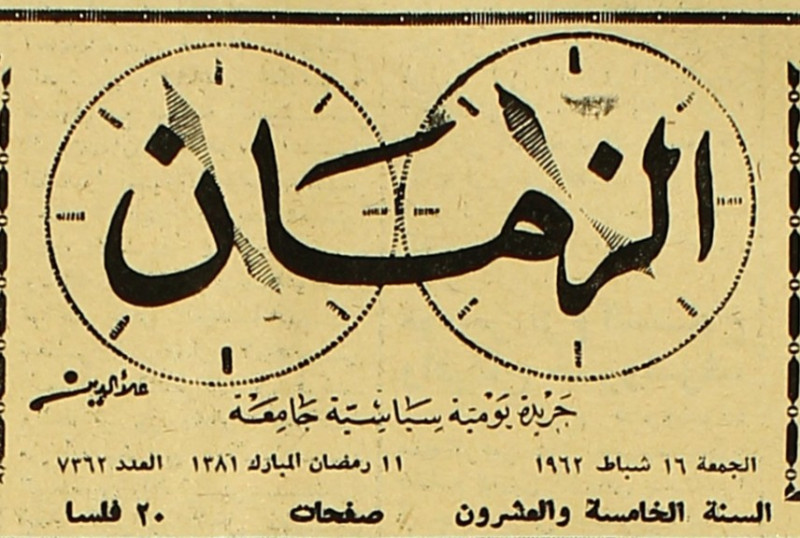 الزمان
علاء الدين
جريدة يومية سياسية جامعة
الجمعة ١٦ شباط ١٩٦٢ ١١ رمضان المبارك ١٣٨١ العدد ٧٣٦٢
السنة الخامسة والعشرون صفحات ٢٠ فلسا